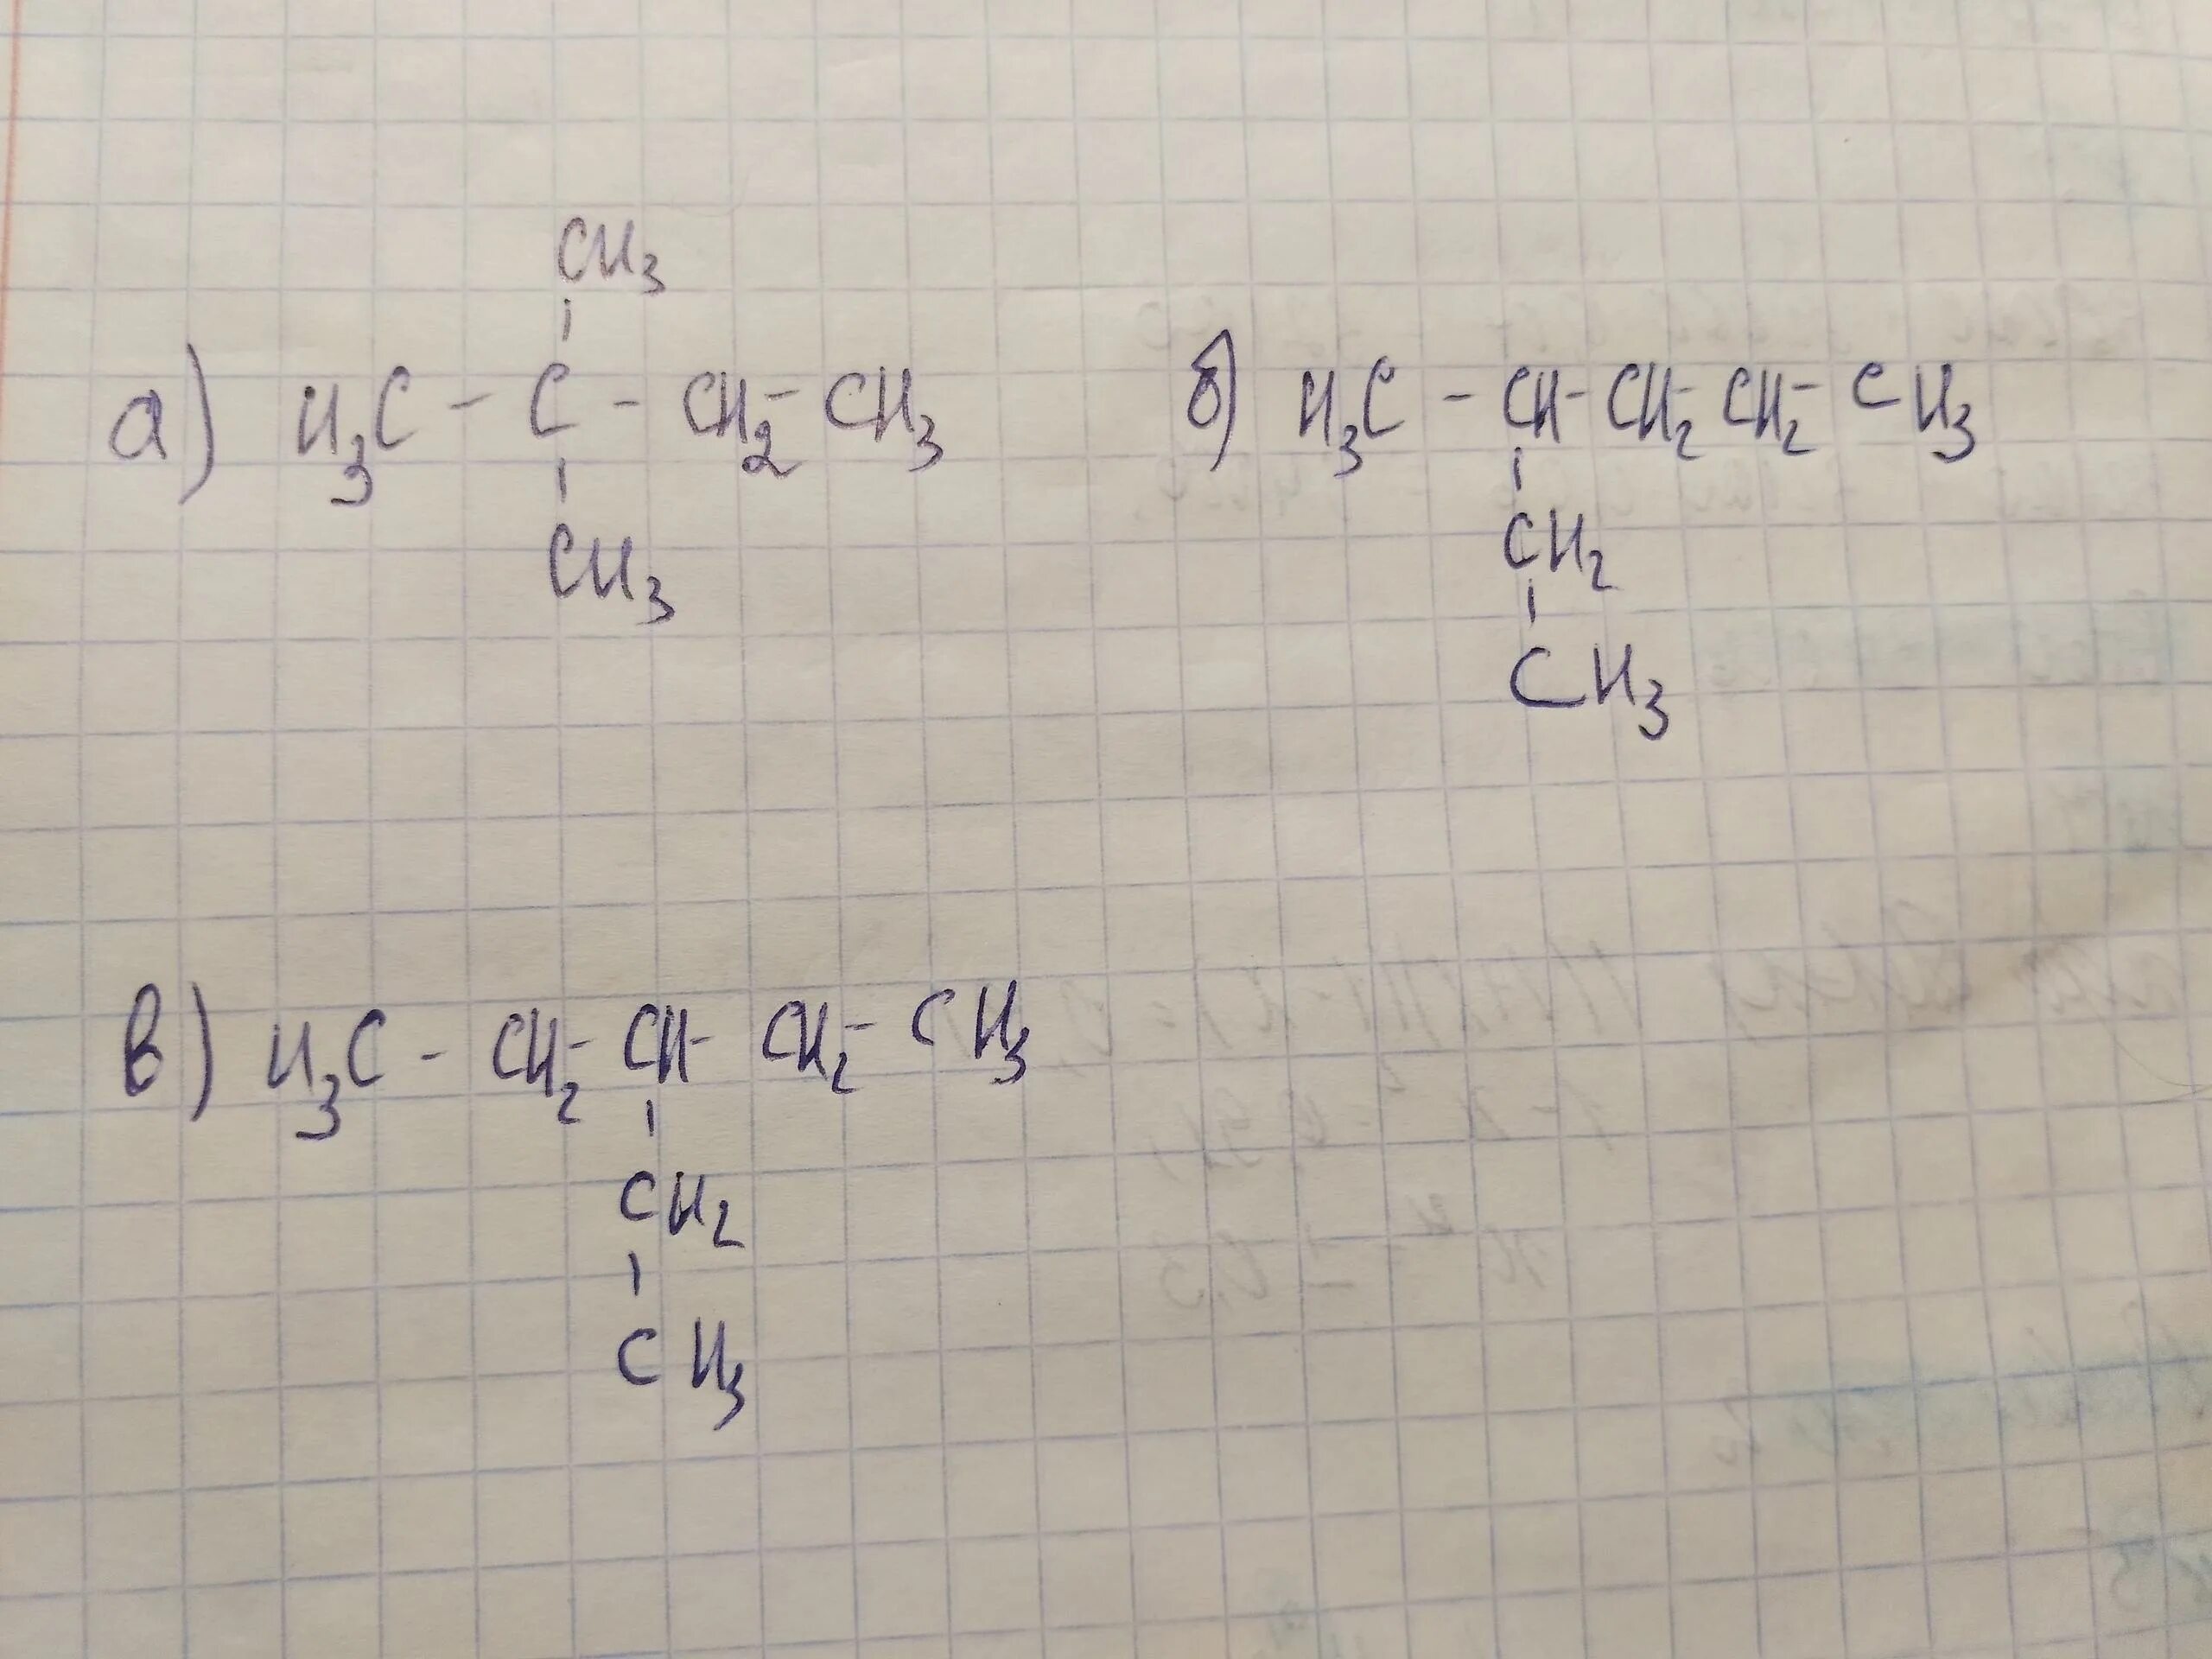 CH₃
а) H₃C - C - CH₂ - CH₃
CH₃
б) H₃C - CH - CH₂ CH₂ - CH₃
CH₂
CH₃
в) H₃C - CH₂ - CH - CH₂ - CH₃
CH₂
CH₃